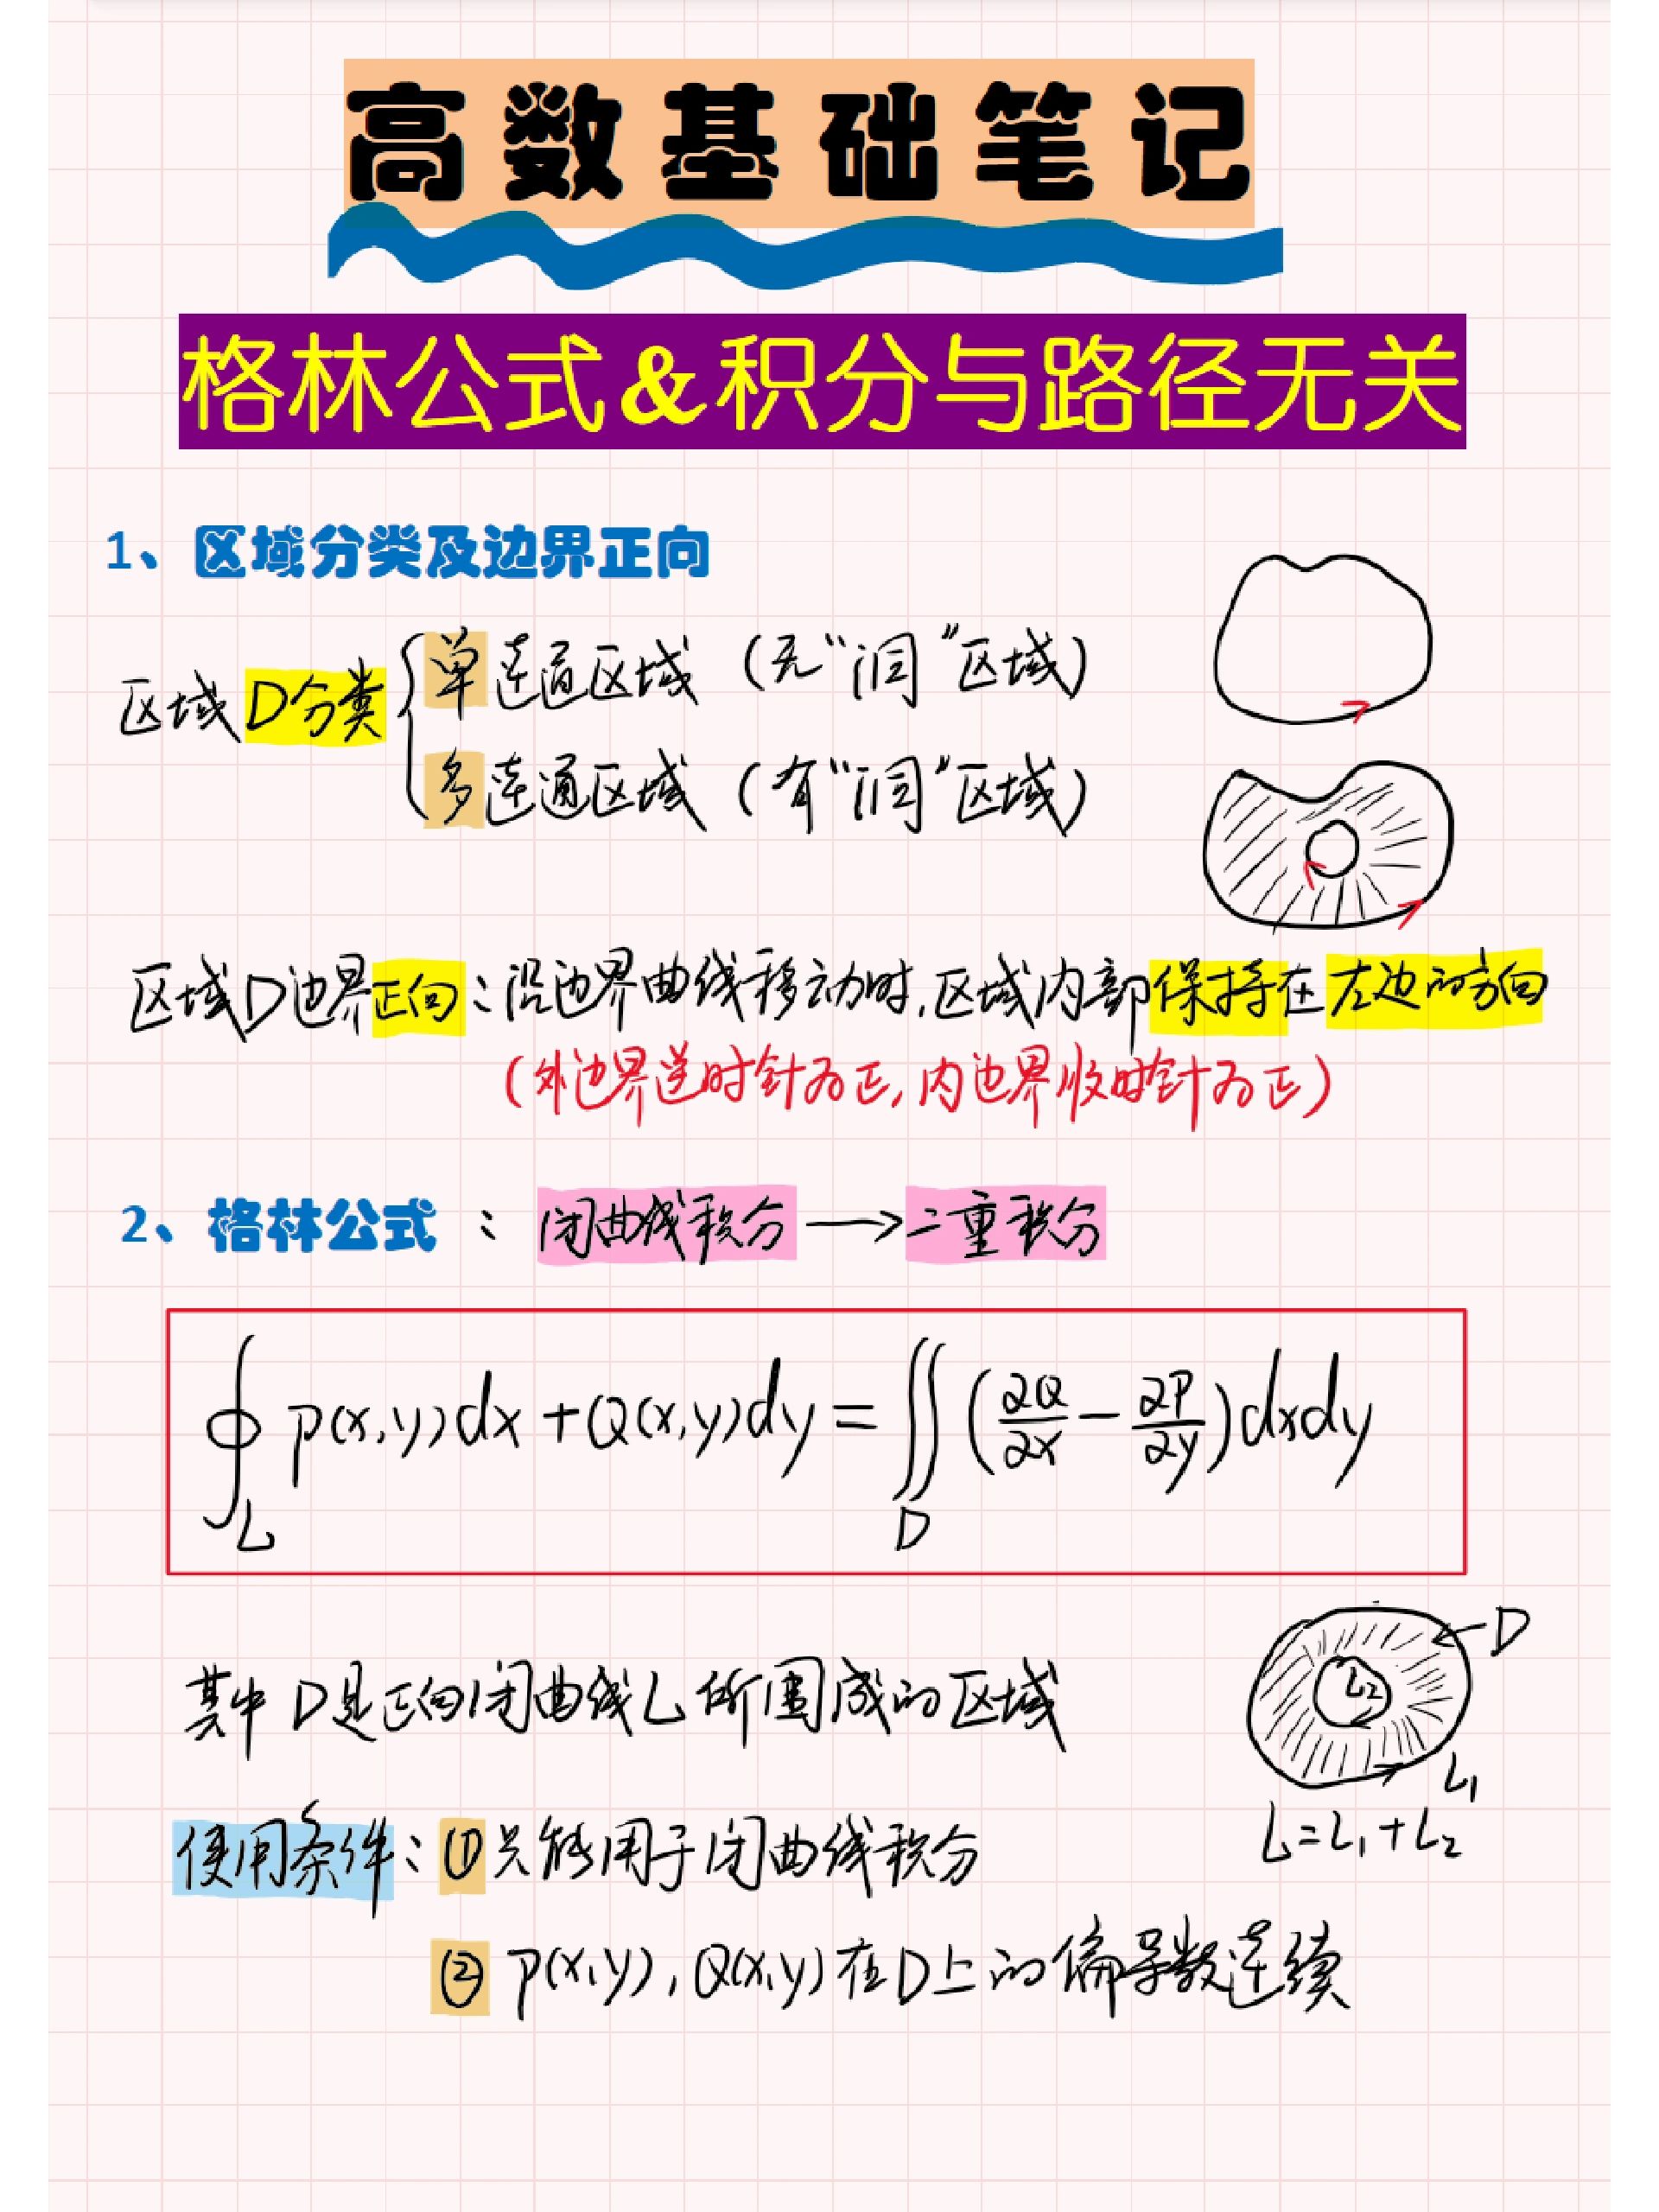 高数基础笔记
格林公式&积分与路径无关
1、区域分类及边界正向
区域D分类
单连通区域（无“洞”区域）
多连通区域（有“洞”区域）
区域D边界正向：沿边界曲线移动时,区域内部保持在左边的方向
（外边界逆时针为正,内边界顺时针为正）
2、格林公式：闭曲线积分→二重积分
∮_L P(x,y)dx+Q(x,y)dy=∬_D(∂Q/∂x-∂P/∂y)dxdy
其中D是正向闭曲线L所围成的区域
D
L2
L1
L=L1+L2
使用条件：①只能用于闭曲线积分
②P(x,y),Q(x,y)在D上的偏导数连续